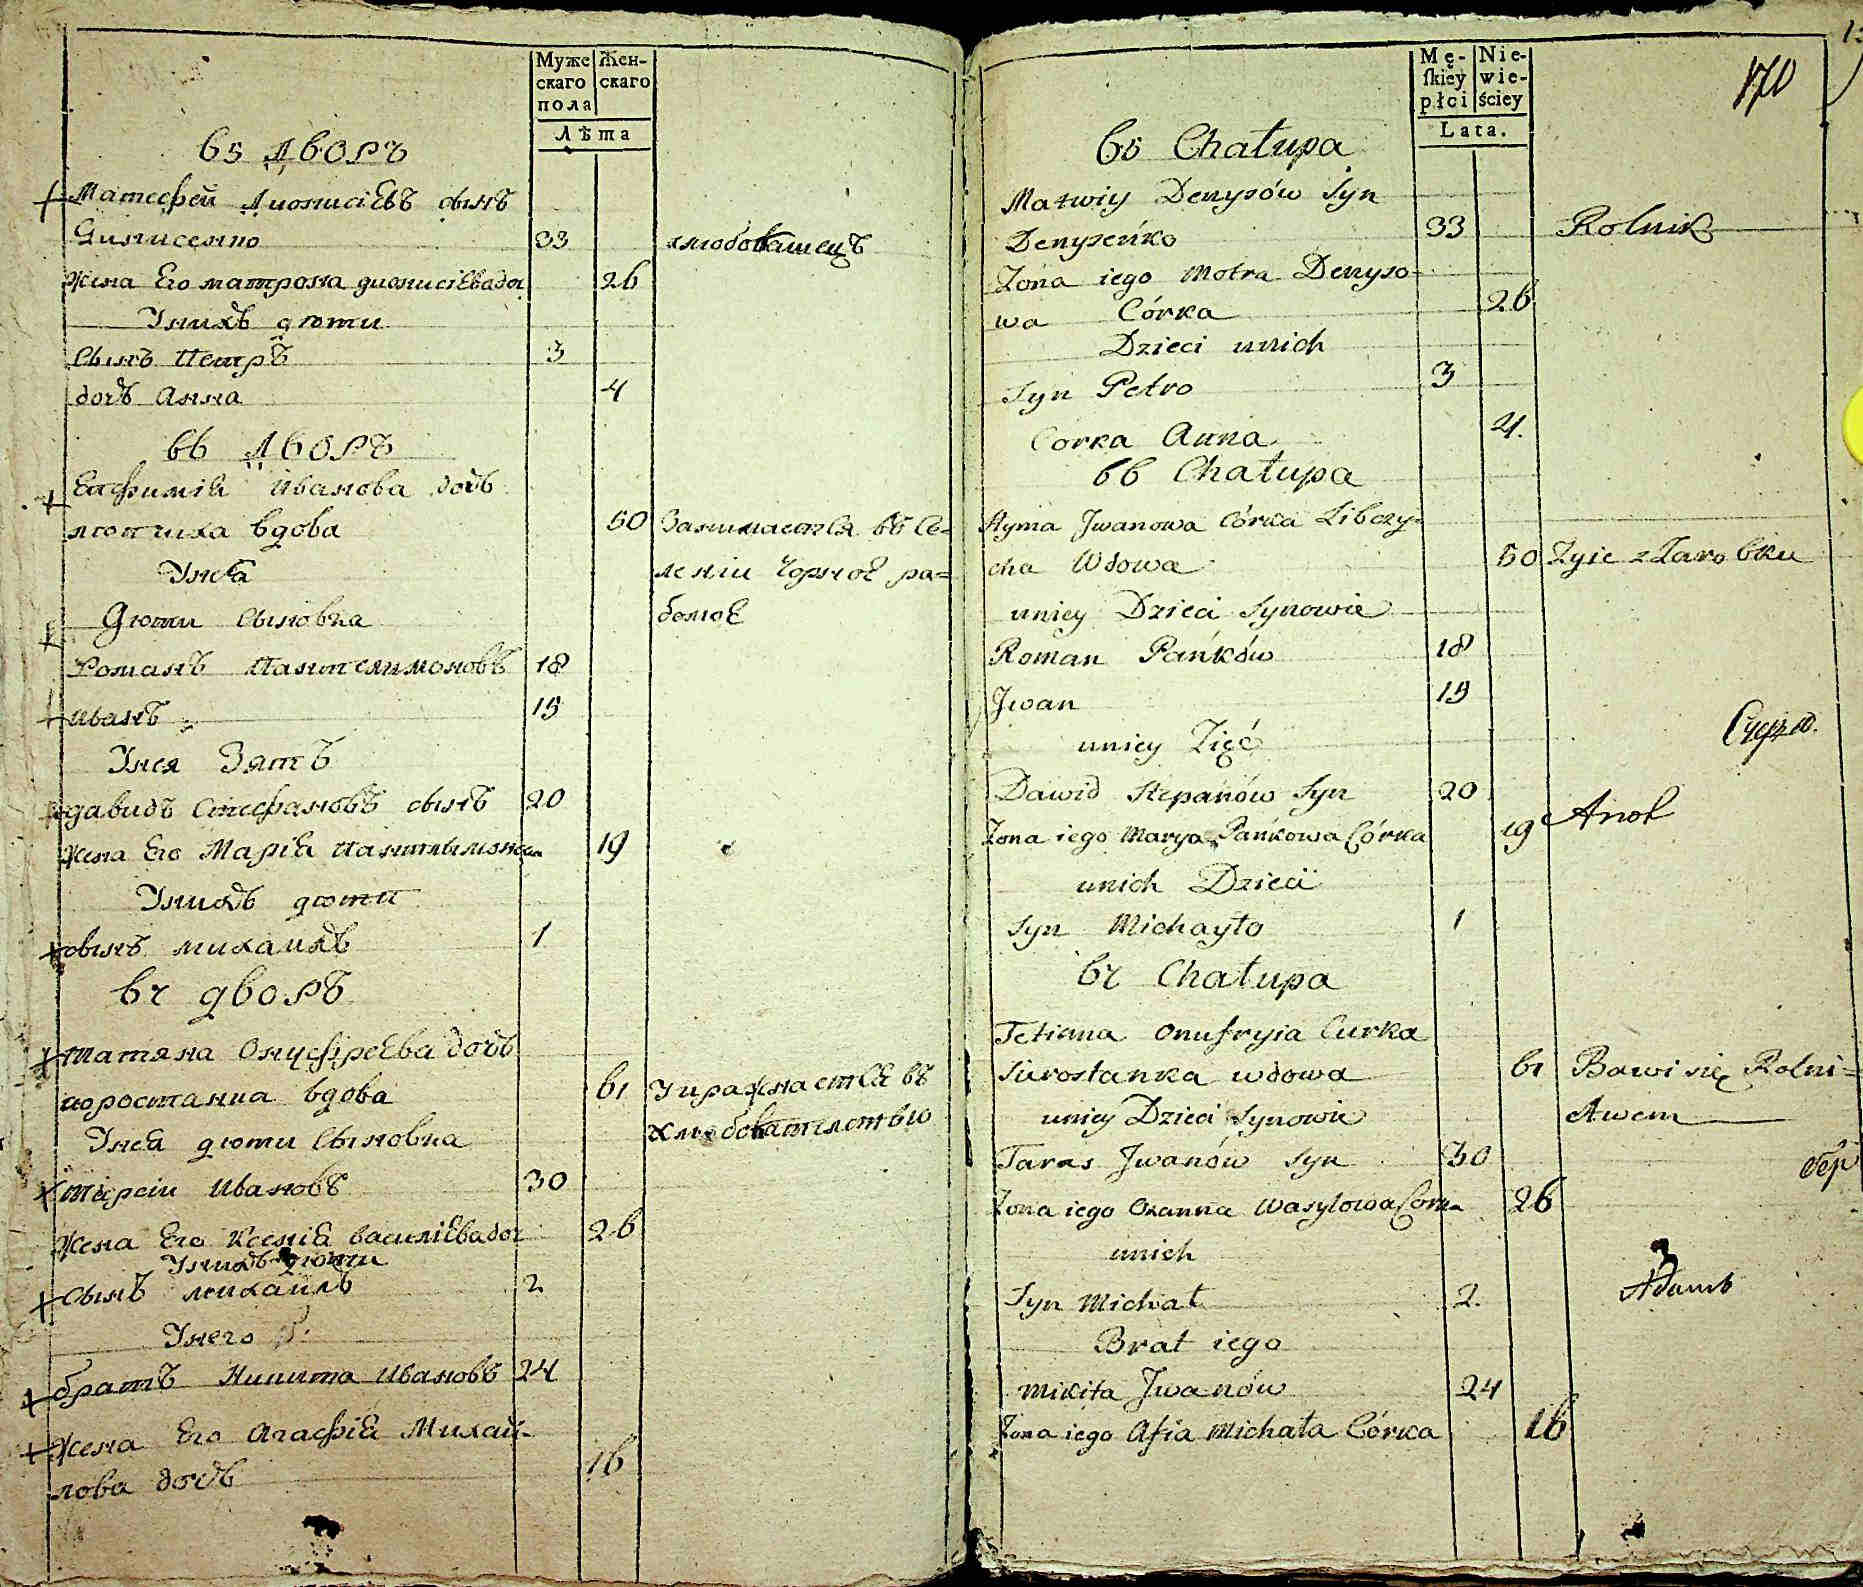 Муже
скаго
пола
Жен-
скаго
Лѣта
65 дворъ
Матвфей Дионисіевъ сынъ
Динисенко 33 хлѣбопашецъ
Жена Его матрона дионисіева доч 26
Унихъ дѣти
Сынъ Петръ 3
дочь Анна 4
66 дворъ
Евфимія Иванова дочь
вдова 50 Занимается въ Се-
Унея леніи Чорною ра-
Дѣти Сыновья ботою
Романъ Пантелимоновъ 18
иванъ 15
Унея Зять
давидъ Стефановъ сынъ 20
Жена Его Марія 19
Унихъ дѣти
сынъ михаилъ 1
67 дворъ
татяна Онуфреева дочь
вдова 61 Упражнается въ
Унея дѣти Сыновья хлѣбопашествѣ
Тарасій Ивановъ 30
Жена Его Ксенія василіева доч 26
Унихъ дѣти
Сынъ михаилъ 2
Унего
братъ Никита Ивановъ 24
Жена Его Агафія Михай-
лова дочь 16
Mę-
skiey
płci
Nie-
wie-
ściey
Lata.
170
65 Chałupa
Matwiy Denysów Syn
Denyseńko 33 Rolnik
Żona iego Motra Denyso-
wa Córka 26
Dzieci unich
Syn Petro 3
Corka Anna 4.
66 Chałupa
Hyma Jwanowa Córka Libczy-
cha Wdowa 50 Żyie z Zarobku
uniey Dzieci Synowie
Roman Pańków 18
Jwan 15
unicy Zięć
Dawid Stepanów Syn 20
Żona iego Marya Pańkowa Córka 19
unich Dzieci
Syn Michayło 1
67 Chałupa
Tetiana Onufryia Curka
Surostanka wdowa 61 Bawi się Rolni-
unicy Dzieci Synowie ctwem
Taras Jwanów Syn 30
Żona iego Oxanna Wasylowa Corka 26
unich
Syn Michał 2.
Brat iego
Mikita Jwanów 24
Żona iego Afia Michała Córka 16